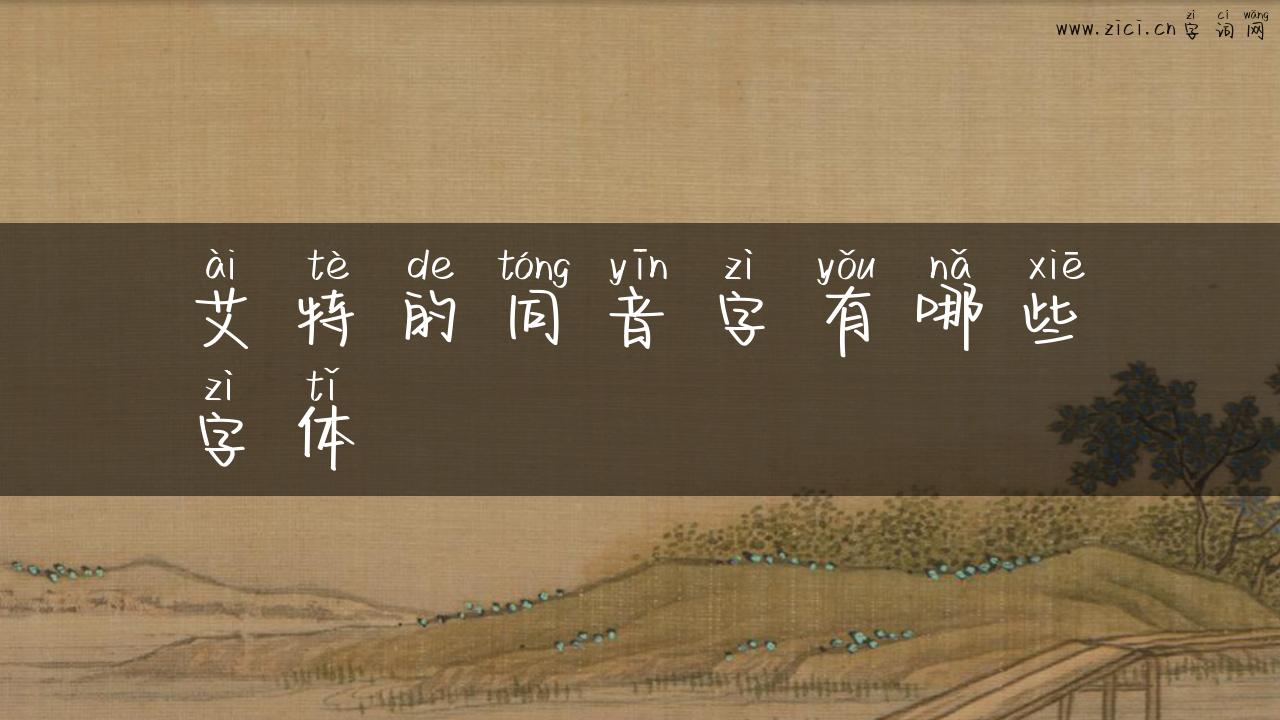 zì cí wǎng
www.zici.cn字词网
ài tè de tóng yīn zì yǒu nǎ xiē
艾特的同音字有哪些
zì tǐ
字体